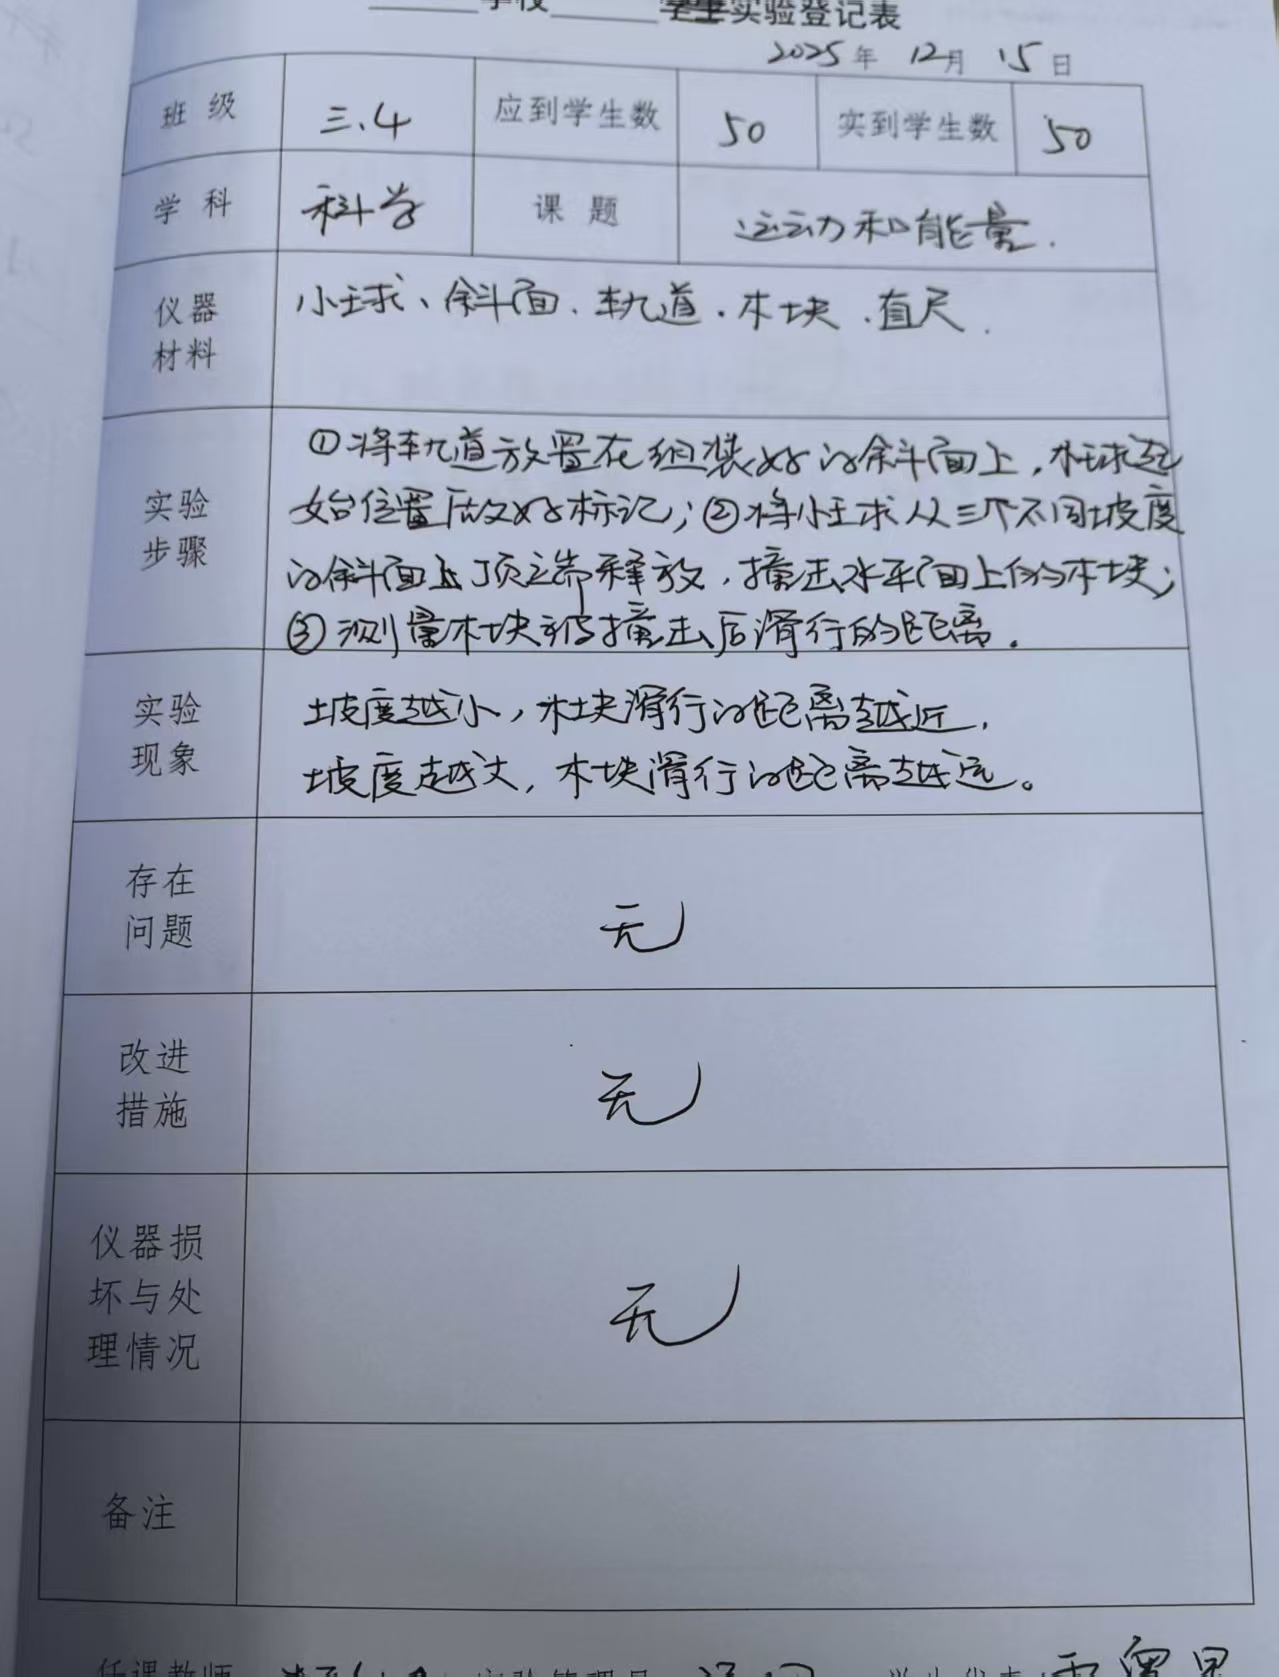 学校 学生实验登记表
2025年 12月 15日
班级 三.4 应到学生数 50 实到学生数 50
学科 科学 课题 运动和能量.
仪器材料 小球、斜面、轨道、木块、直尺.
实验步骤
①将轨道放置在组装好的斜面上,木球起
始位置做好标记;②将小球从三个不同坡度
的斜面上顶端释放,撞击水平面上的木块;
③测量木块被撞击后滑行的距离.
实验现象
坡度越小,木块滑行的距离越近,
坡度越大,木块滑行的距离越远。
存在问题 无
改进措施 无
仪器损坏与处理情况 无
备注
任课教师 实验管理员 学生代表